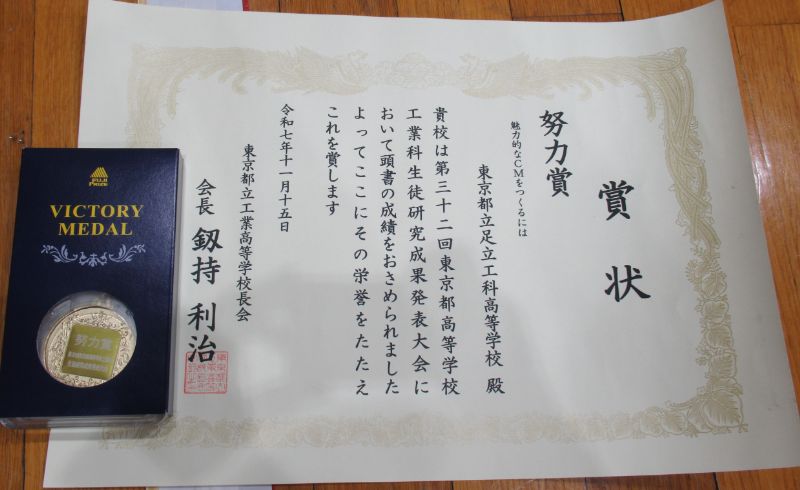 賞状
努力賞
魅力的なCMをつくるには
東京都立足立工科高等学校 殿
貴校は第三十二回東京都高等学校
工業科生徒研究成果発表大会に
おいて頭書の成績をおさめられました
よってここにその栄誉をたたえ
これを賞します
令和七年十一月十五日
東京都立工業高等学校長会
会長 釼持 利治
FUJI
PRIZE
VICTORY
MEDAL
努力賞